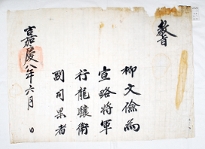 敎旨
柳文儉爲
宣略將軍
行龍驤衛
副司果者
嘉慶八年六月 日